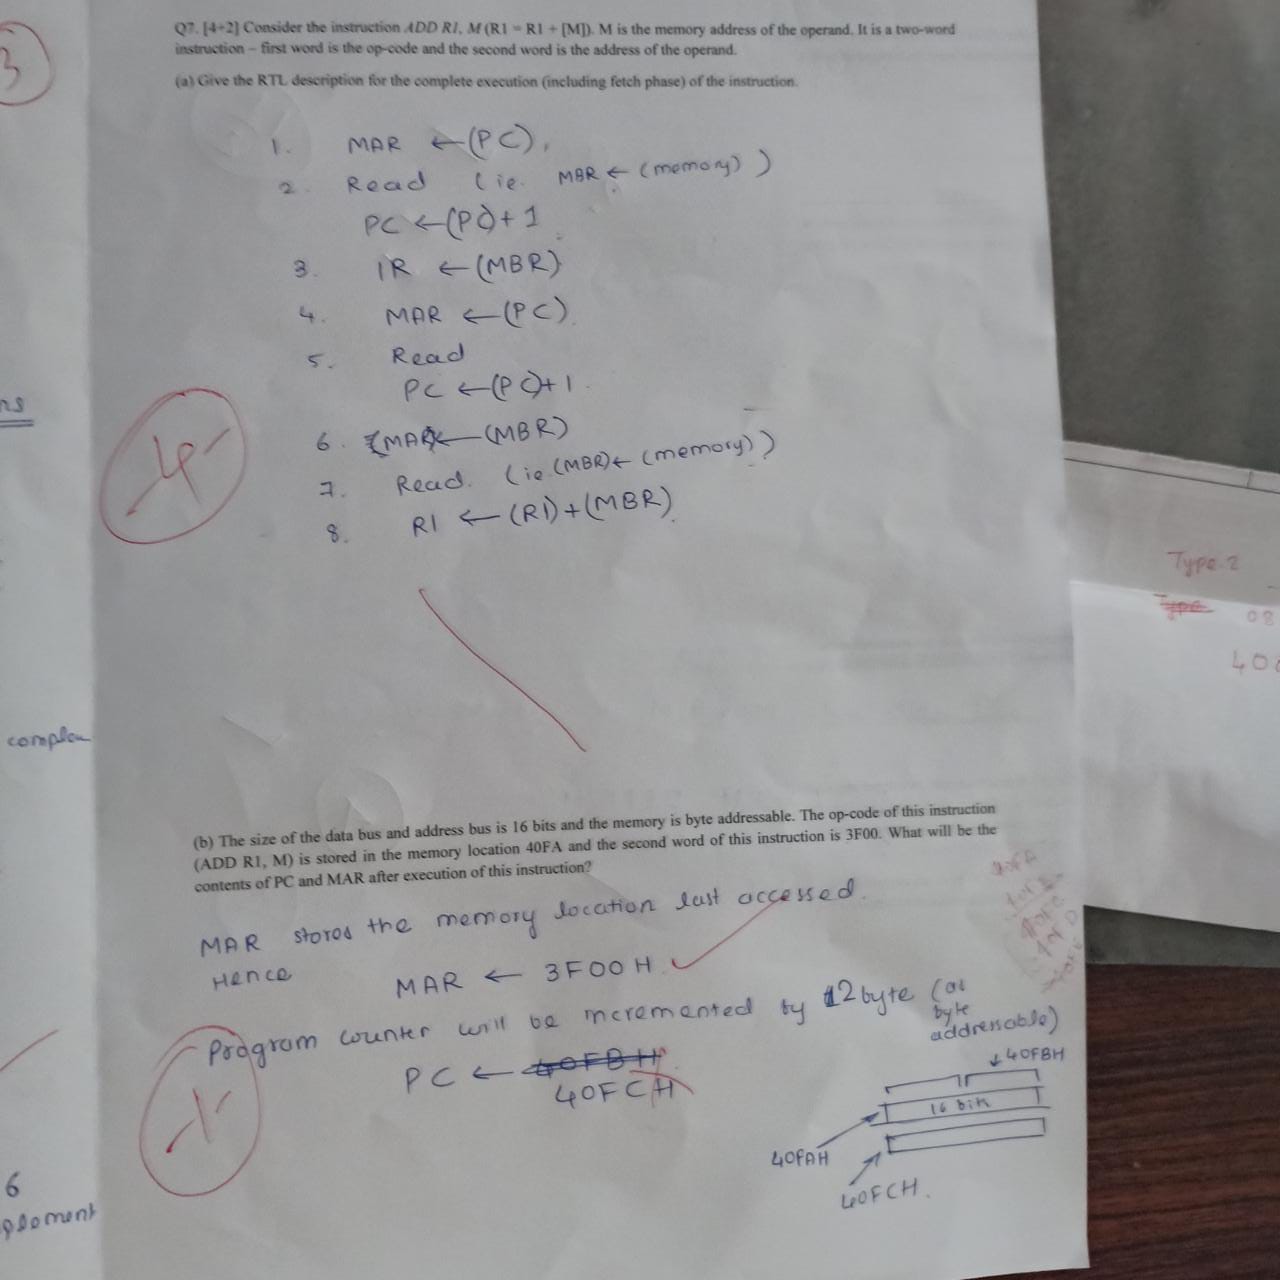 3
Q7. [4+2] Consider the instruction ADD R1, M (R1 = R1 + [M]). M is the memory address of the operand. It is a two-word
instruction – first word is the op-code and the second word is the address of the operand.
(a) Give the RTL description for the complete execution (including fetch phase) of the instruction.
1. MAR ← (PC),
2. Read (ie. MBR ← (memory))
PC ← (PC)+1
3. IR ← (MBR)
4. MAR ← (PC)
5. Read
PC ← (PC)+1
6. MAR ← (MBR)
7. Read. (ie. (MBR) ← (memory))
8. R1 ← (R1)+(MBR)
4
ns
Type.2
Type 08
40
complem
(b) The size of the data bus and address bus is 16 bits and the memory is byte addressable. The op-code of this instruction
(ADD R1, M) is stored in the memory location 40FA and the second word of this instruction is 3F00. What will be the
contents of PC and MAR after execution of this instruction?
40FA
MAR stores the memory location last accessed.
Hence MAR ← 3F00H
Program counter will be incremented by 2 byte (as
byte
addressable)
PC ← 40FBH
40FCH
1
↓ 40FBH
16 bits
40FAH
40FCH.
6
plement